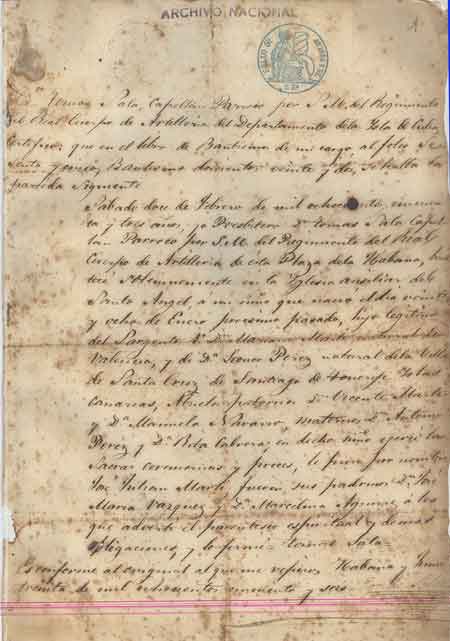 ARCHIVO NACIONAL
Tomas Sala, Capellan Parroco por S.M. del Regimiento
del Real Cuerpo de Artilleria del Departamento de la Isla de Cuba
Certifico, que en el libro de Bautismo de mi cargo al folio
y cinco, Bautismo doscientos veinte y dos, se halla la
partida siguiente
Sabado doce de Febrero de mil ochocientos cincuen
ta y tres años, yo Presbitero Dn. Tomas Sala Cape
llan Parroco por S.M. del Regimiento del Real
Cuerpo de Artilleria de esta Plaza de la Habana, bau
ticé solemnemente en la Iglesia auxiliar del
Santo Angel, a un niño que nació el dia veinte
y ocho de Enero procsimo pasado, hijo legitimo
del Sargento 1º Dn. Mariano Martí natural de
Valencia, y de Dª Leonor Perez natural de la Villa
de Santa Cruz de Santiago de Tenerife Islas
Canarias, Abuelos paternos Dn. Vicente Martí
y Dª Manuela Navarro, maternos Dn. Antonio
Perez y Dª Rita Cabrera: en dicho niño ejercí las
sacras ceremonias y preces, le puse por nombre
José Julian Martí, fueron sus padrinos Dn. José
Maria Vazquez y Dª Marcelina Aguirre, á los
que advertí el parentesco espiritual y demas
obligaciones y lo firmé = Tomas Sala
Es conforme al original al que me refiero Habana y Junio
treinta de mil ochocientos cincuenta y seis